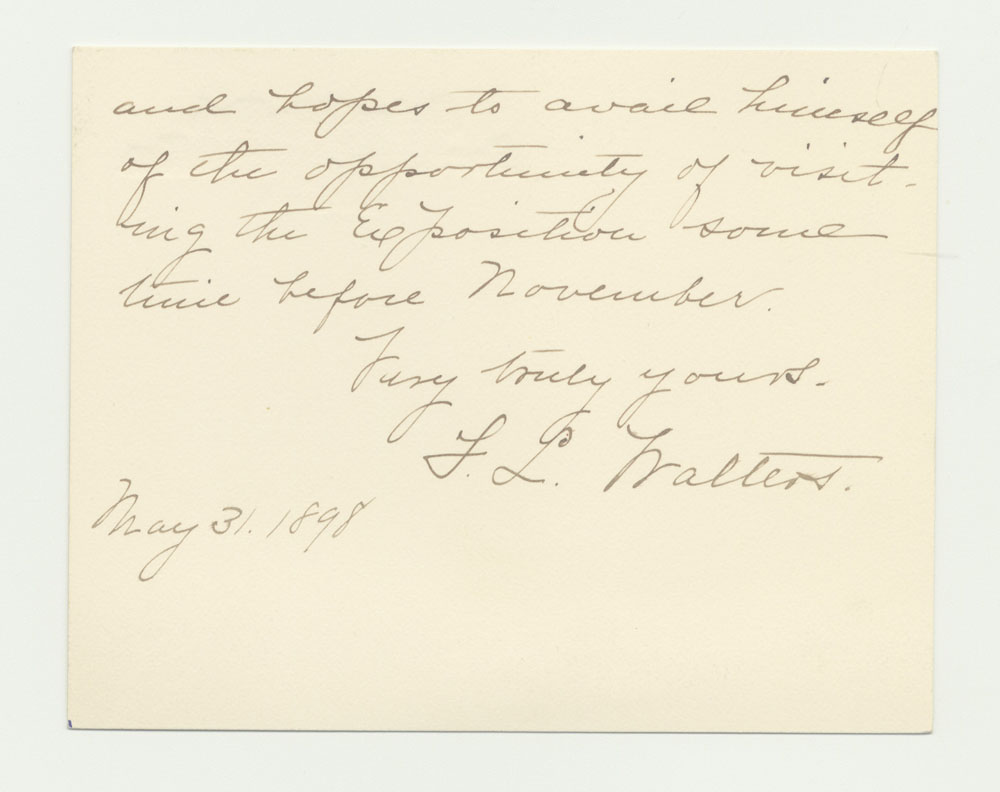 and hopes to avail himself
of the opportunity of visit-
ing the Exposition some
time before November.
Very truly yours.
L. Walters.
May 31. 1898